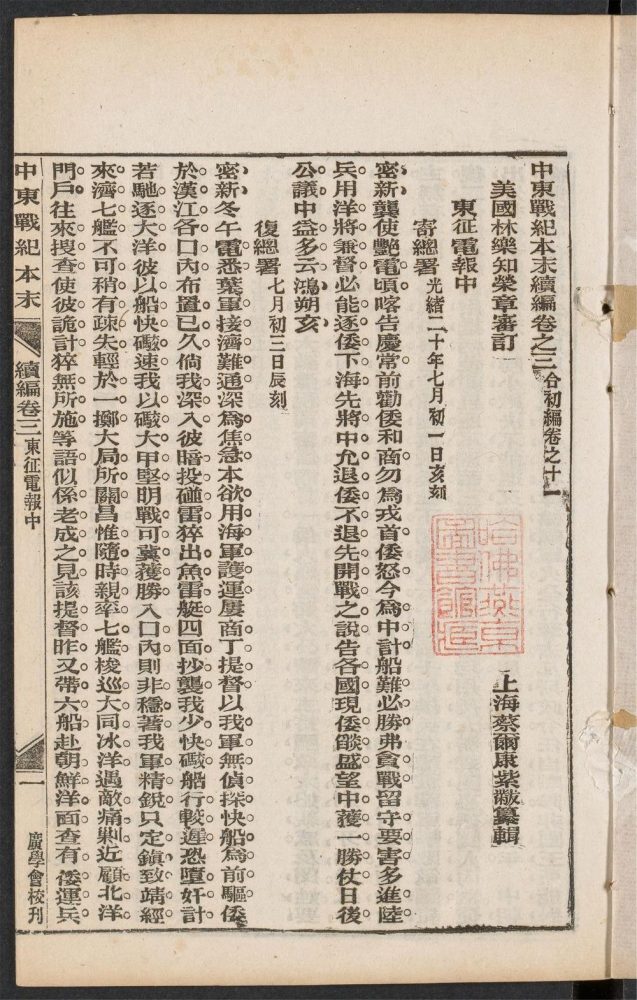 中東戰紀本末續編卷之三 合初編卷之十一
美國林樂知榮章審訂
上海蔡爾康紫黻纂輯
東征電報中
寄總署 光緒二十年七月初一日亥刻
密新龔使艷電頃喀告慶常前勸倭和商勿爲戎首倭怒今爲中計船難必勝弗貪戰留守要害多進陸
兵用洋將兼督必能逐倭下海先將中允退倭不退先開戰之說告各國現倭燄盛望中獲一勝仗日後
公議中益多云鴻朔亥
復總署 七月初三日辰刻
密新冬午電悉葉軍接濟難通深爲焦急本欲用海軍護運屢商丁提督以我軍無偵探快船爲前驅倭
於漢江各口內布置已久倘我深入彼暗投碰雷猝出魚雷艇四面抄襲我少快礮船行較遲恐墮奸計
若馳逐大洋彼以船快礮速我以礮大甲堅明戰可冀獲勝入口內則非穩著我軍精銳只定鎮致靖經
來濟七艦不可稍有疎失輕於一擲大局所關昌惟隨時親率七艦梭巡大同冰洋遇敵痛剿近顧北洋
門戶往來搜查使彼詭計猝無所施等語似係老成之見該提督昨又帶六船赴朝鮮洋面查有倭運兵
中東戰紀本末
續編卷三 東征電報中
一
廣學會校刊
哈佛燕京
圖書館